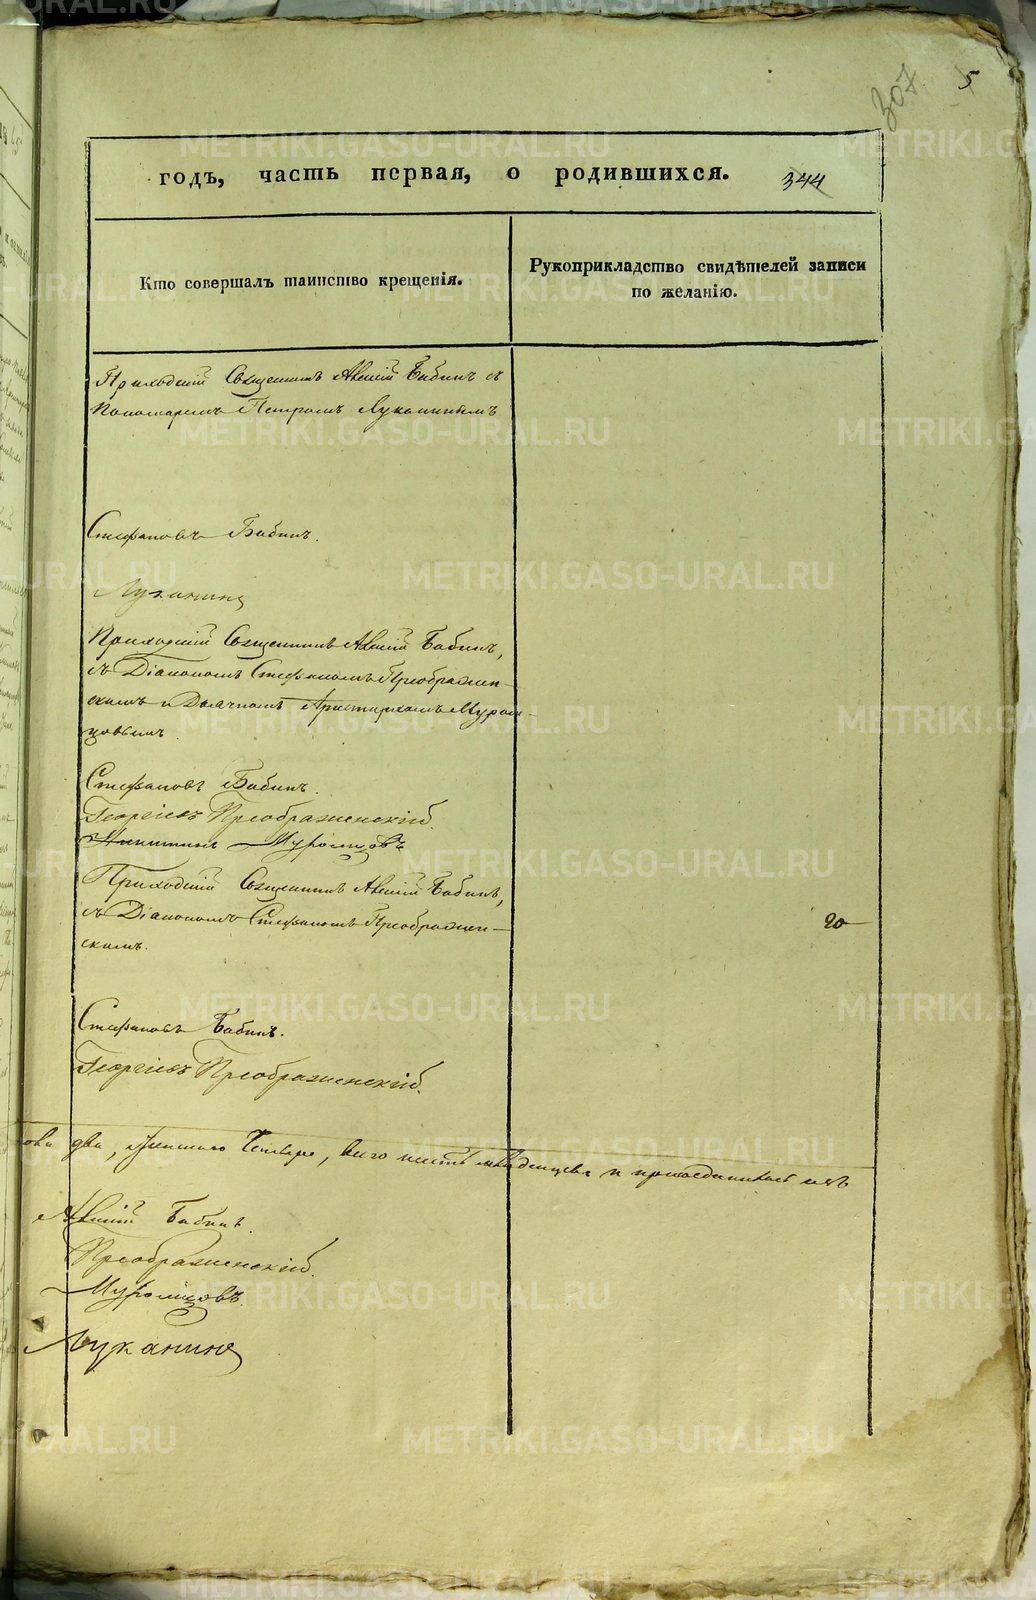 307.
5
годъ, часть первая, о родившихся. 344
Кто совершалъ таинство крещенія.
Рукоприкладство свидѣтелей записи
по желанію.
Приходскій Священникъ Алексій Бабинъ съ
Пономаремъ Петромъ Луканинымъ
Стефановъ Бабинъ.
Луканинъ
Приходскій Священникъ Алексій Бабинъ,
съ Діакономъ Стефаномъ Преображен-
скимъ и Дьячкомъ Аристархомъ Муром-
цовымъ.
Стефановъ Бабинъ.
Георгіевъ Преображенскій.
Никитинъ Муромцовъ
Приходскій Священникъ Алексій Бабинъ,
съ Діакономъ Стефаномъ Преображен-
скимъ.
20
Стефановъ Бабинъ.
Георгіевъ Преображенскій.
два, женскаго Четыре, всего шесть младенцевъ и
Алексій Бабинъ.
Преображенскій.
Муромцовъ.
Луканинъ
METRIKI.GASO-URAL.RU